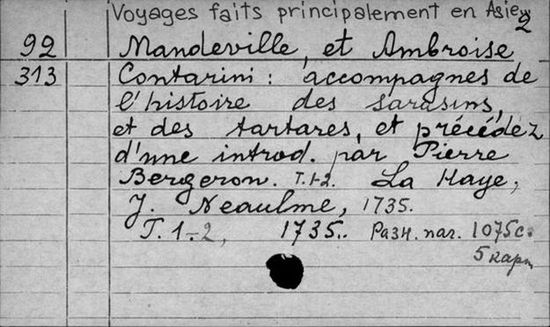 Voyages faits principalement en Asie 2
92 Mandeville, et Ambroise
313 Contarini: accompagnés de
l'histoire des sarasins,
et des tartares, et précédez
d'une introd. par Pierre
Bergeron. T.1-2. La Haye,
J. Neaulme, 1735.
T. 1-2, 1735. Разн. паг. 1075с.
5 карт